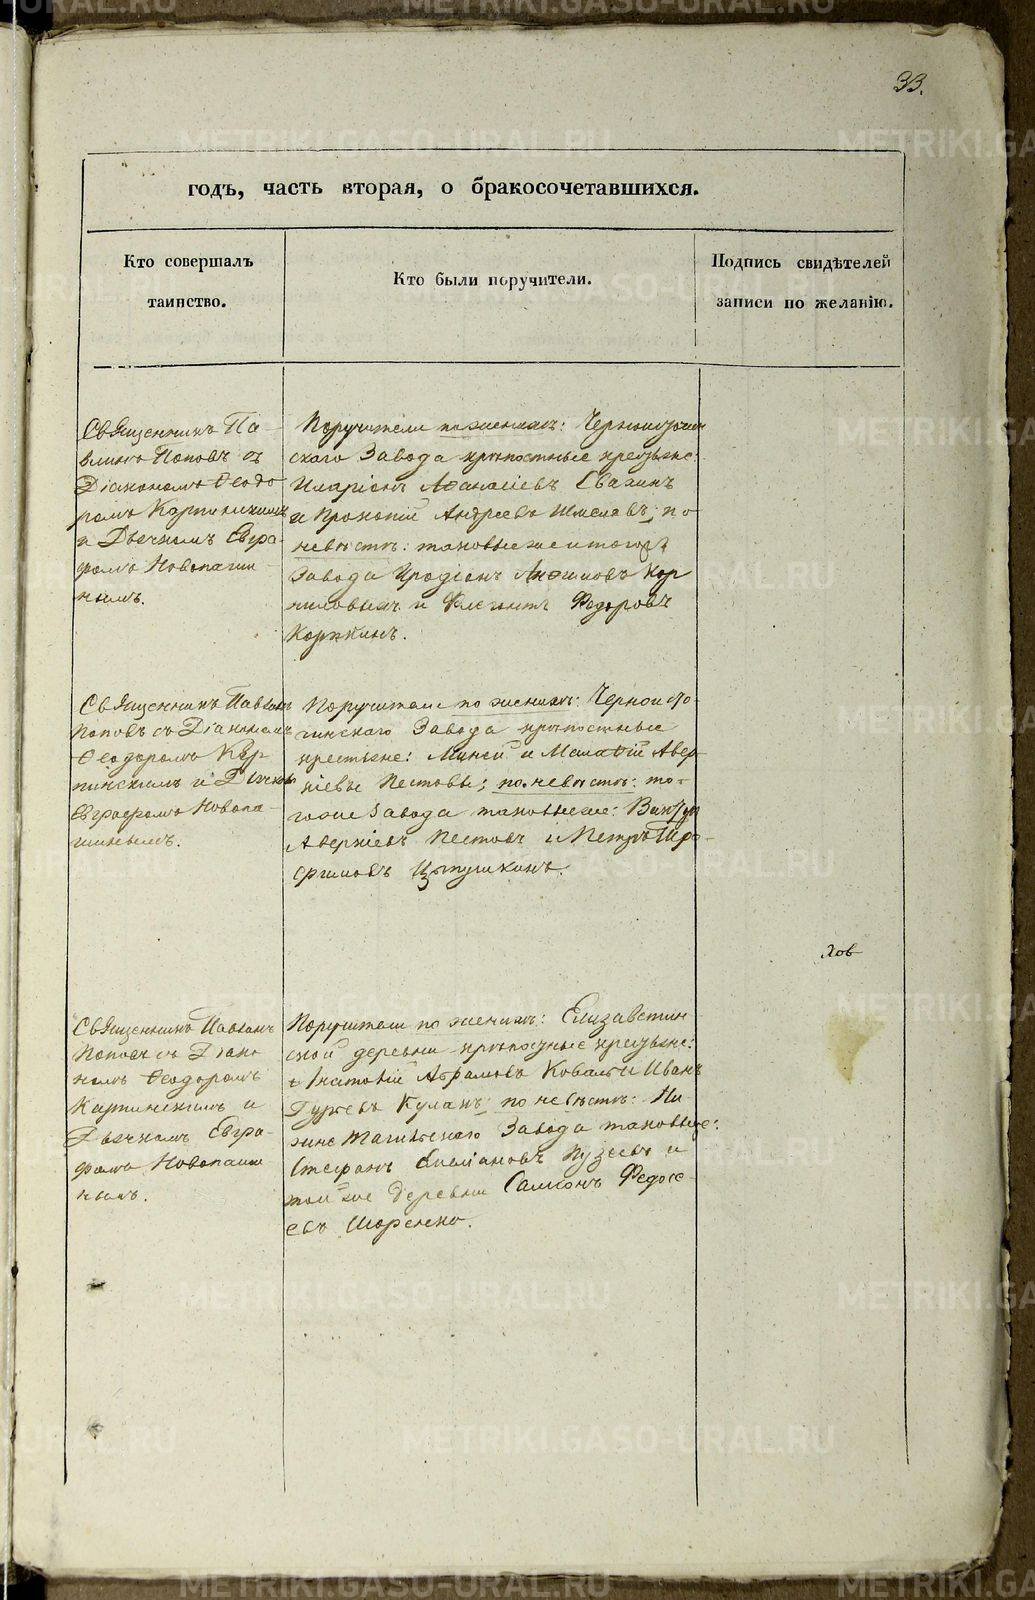 33.
годъ, часть вторая, о бракосочетавшихся.
Кто совершалъ
таинство.
Кто были поручители.
Подпись свидѣтелей
записи по желанію.
Священникъ Па-
влинъ Поповъ съ
Діакономъ Ѳеодо
ромъ Карпинскимъ
и Дьячкомъ Евгра-
фомъ Новопаши-
нымъ.
Поручители по женихѣ: Черноисточин
скаго Завода крѣпостные крестьяне
Иларіонъ Аѳанасіевъ Евахинъ
и Прокопій Андреевъ Шмелевъ; по
невѣстѣ: таковые же и того жъ
Завода Иродіонъ Анѳимовъ Кор
ниловыхъ и Федоровъ
Коряжкинъ.
Священникъ Павлинъ
Поповъ съ Діакономъ
Ѳеодоромъ Кар-
пинскимъ и Дьячкомъ
Евграфомъ Новопа-
шинымъ.
Поручители по женихѣ: Черноисто-
чинскаго Завода крѣпостные
крестьяне: Минсй и Малаѳій Авер-
кіевы Пестовы; по невѣстѣ: то-
гоже Завода таковыеже:
Аверкіевъ Пестовъ и Петръ Тро-
фимовъ Цыпушкинъ.
Хов
Священникъ Павлинъ
Поповъ съ Діако-
номъ Ѳеодоромъ
Карпинскимъ и
Дьячкомъ Евгра-
фомъ Новопаши
нымъ.
Поручители по женихѣ: Елизаветин
ской деревни крѣпостные крестьяне:
Игнатій Абрамовъ Коваль и Иванъ
Гурьевъ Куланъ; по невѣстѣ: Ни-
жнетагильскаго Завода таковые:
Стефанъ Емеліановъ Пузеевъ и
той же деревни Самсонъ Федосе-
евъ Шоренко.
METRIKI.GASO-URAL.RU